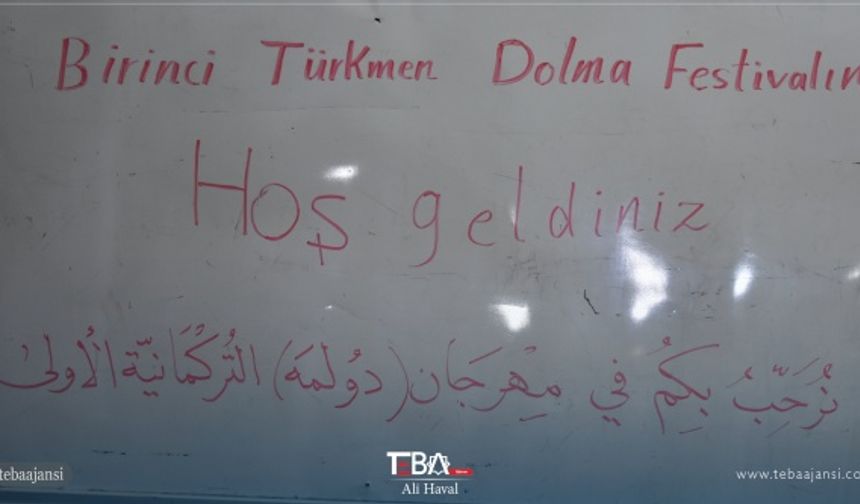 Birinci Türkmen Dolma Festivalın
Hoş geldiniz
نُرَحِّبُ بِكُمُ في مِهْرَجَان (دوُلمَة) التُركُمَانيّة الأُولىٰ
tebaajansi
TEBA
Ali Haval
www.tebaajansi.co